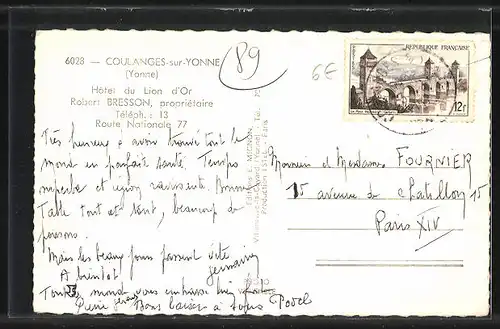 6028 — COULANGES-sur-YONNE
(Yonne)
Hôtel du Lion d'Or
Robert BRESSON, propriétaire
Téléph. : 13
Route Nationale 77
89
6€
REPUBLIQUE FRANÇAISE
12f
Très heureux avoir trouvé tout le
monde en parfaite santé Temps
superbe et région ravissante. Bonne
Table tout est vert, beaucoup de
poissons.
Mais les beaux jours passent vite
A bientôt germaine
Tout le monde vous embrasse bien
Pierre Bons baisers à tous
Monsieur et Madame FOURNIER
15 avenue de Chatillon 15
Paris XIV